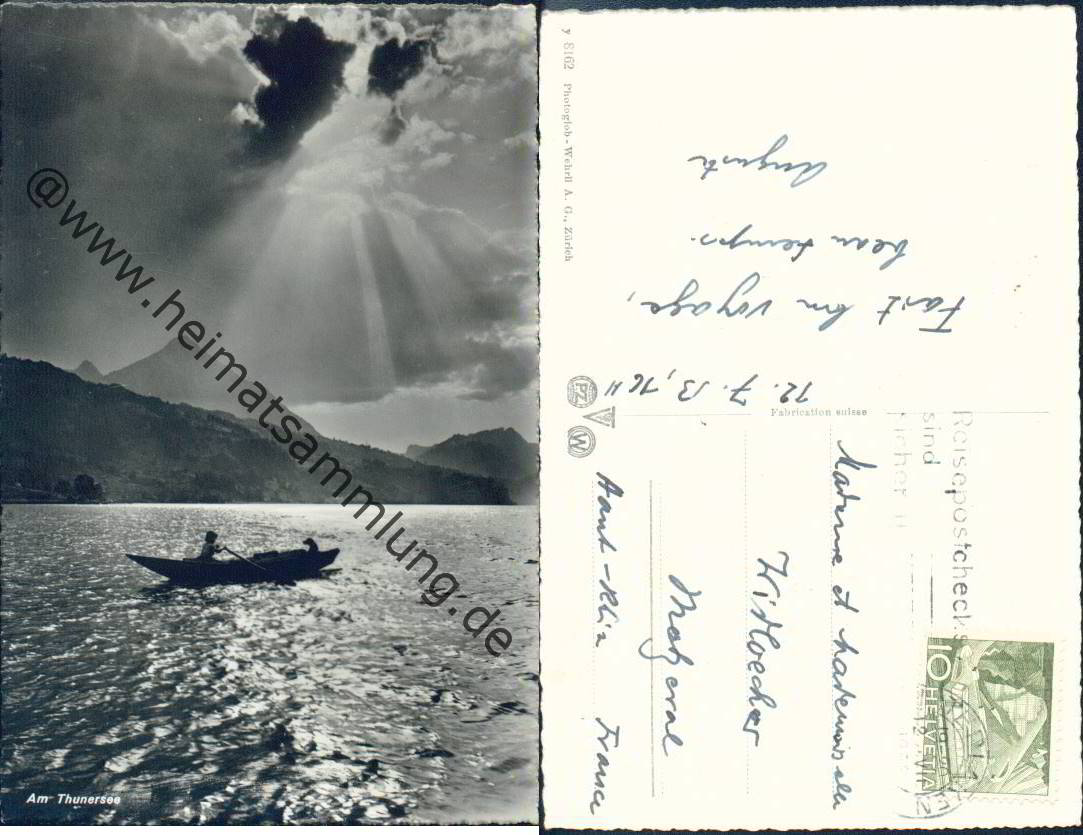 @www.heimatsammlung.de
Am Thunersee
y 8162 Photoglob-Wehrli A. G., Zürich
12. 7. 53, 16 H
Fait bon voyage,
beau temps.
Auguste
Fabrication suisse
PZ
W
Reisepostchecks
sind
sicher
10
HELVETIA
Madame et
Witloecher
Metzeral
Haut-Rhin France